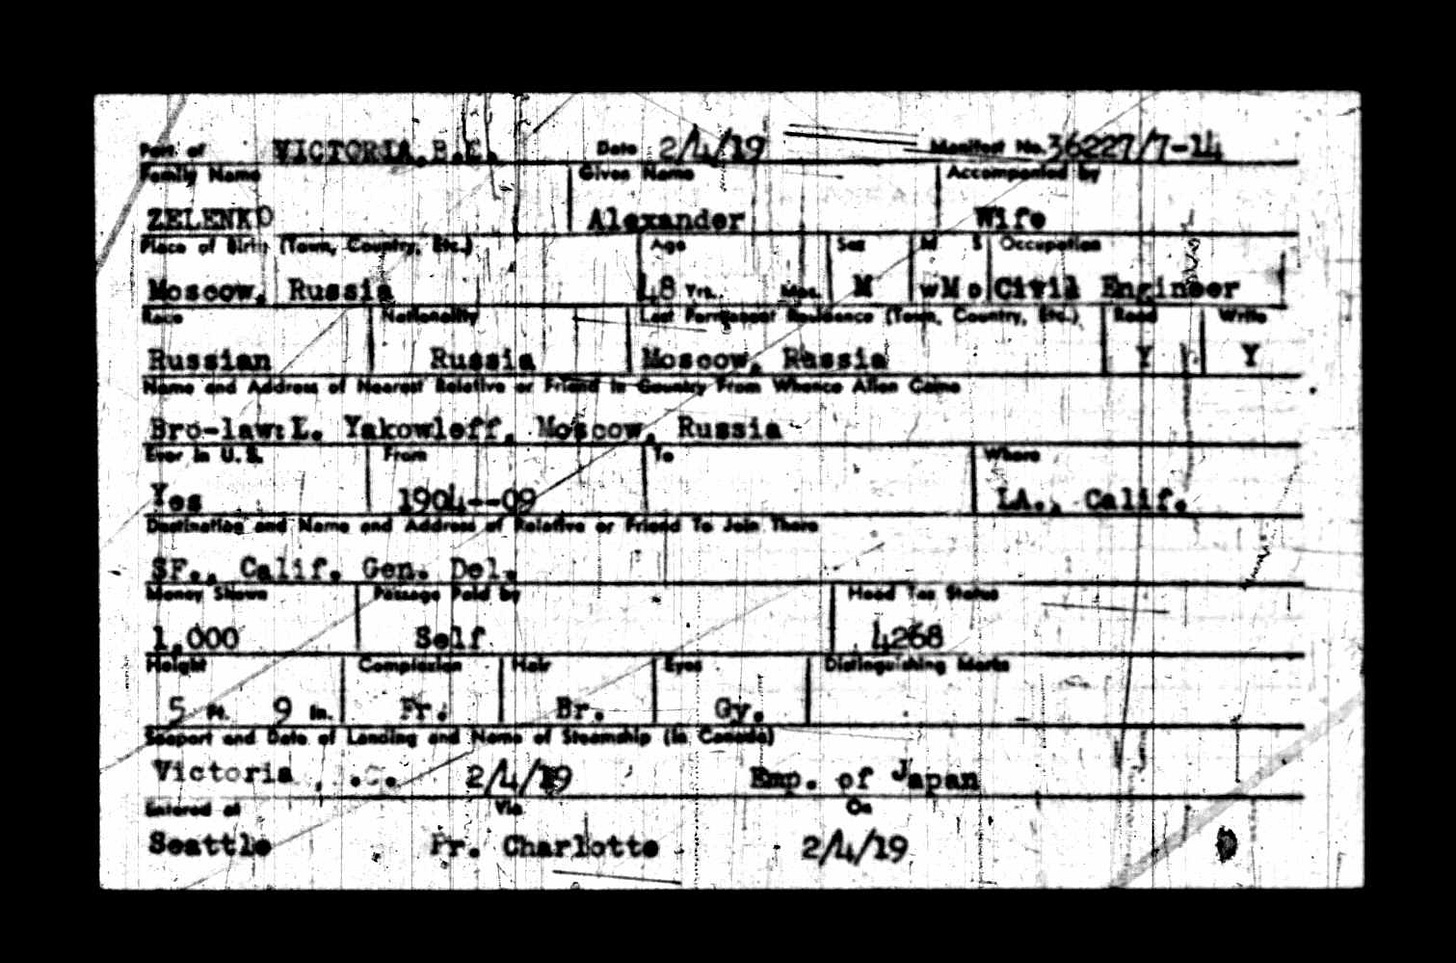 Port of VICTORIA, B.C. Date 2/4/19 Manifest No. 36227/7-14
Family Name Given Name Accompanied by
ZELENKO Alexander Wife
Place of Birth (Town, Country, Etc.) Age Sex M S Occupation
Moscow, Russia 48 Yrs. Mos. M wMo Civil Engineer
Race Nationality Last Permanent Residence (Town, Country, Etc.) Read Write
Russian Russia Moscow, Russia Y Y
Name and Address of Nearest Relative or Friend in Country From Whence Alien Came
Bro-law: L. Yakowleff, Moscow, Russia
Ever in U. S. From To Where
Yes 1904--09 LA., Calif.
Destination and Name and Address of Relative or Friend To Join There
SF., Calif. Gen. Del.
Money Shown Passage Paid by Head Tax Status
1,000 Self 4268
Height Complexion Hair Eyes Distinguishing Marks
5 Ft. 9 In. Fr. Br. Gy.
Seaport and Date of Landing and Name of Steamship (in Canada)
Victoria, .C. 2/4/19 Emp. of Japan
Entered at Via On
Seattle Pr. Charlotte 2/4/19